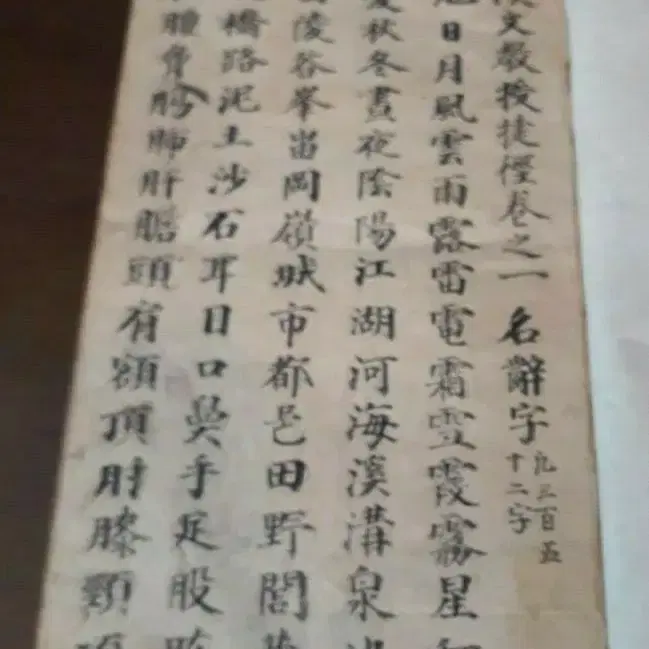 漢文敎授捷徑卷之一 名辭字
凡三百五
十二字
日月風雲雨露雷電霜雪霞霧星
夏秋冬晝夜陰陽江湖河海溪溝泉
陵谷峯岡嶺城市都邑田野閭
橋路泥土沙石耳目口鼻手足股
體肺肝膽頭有額頂肘膝頸